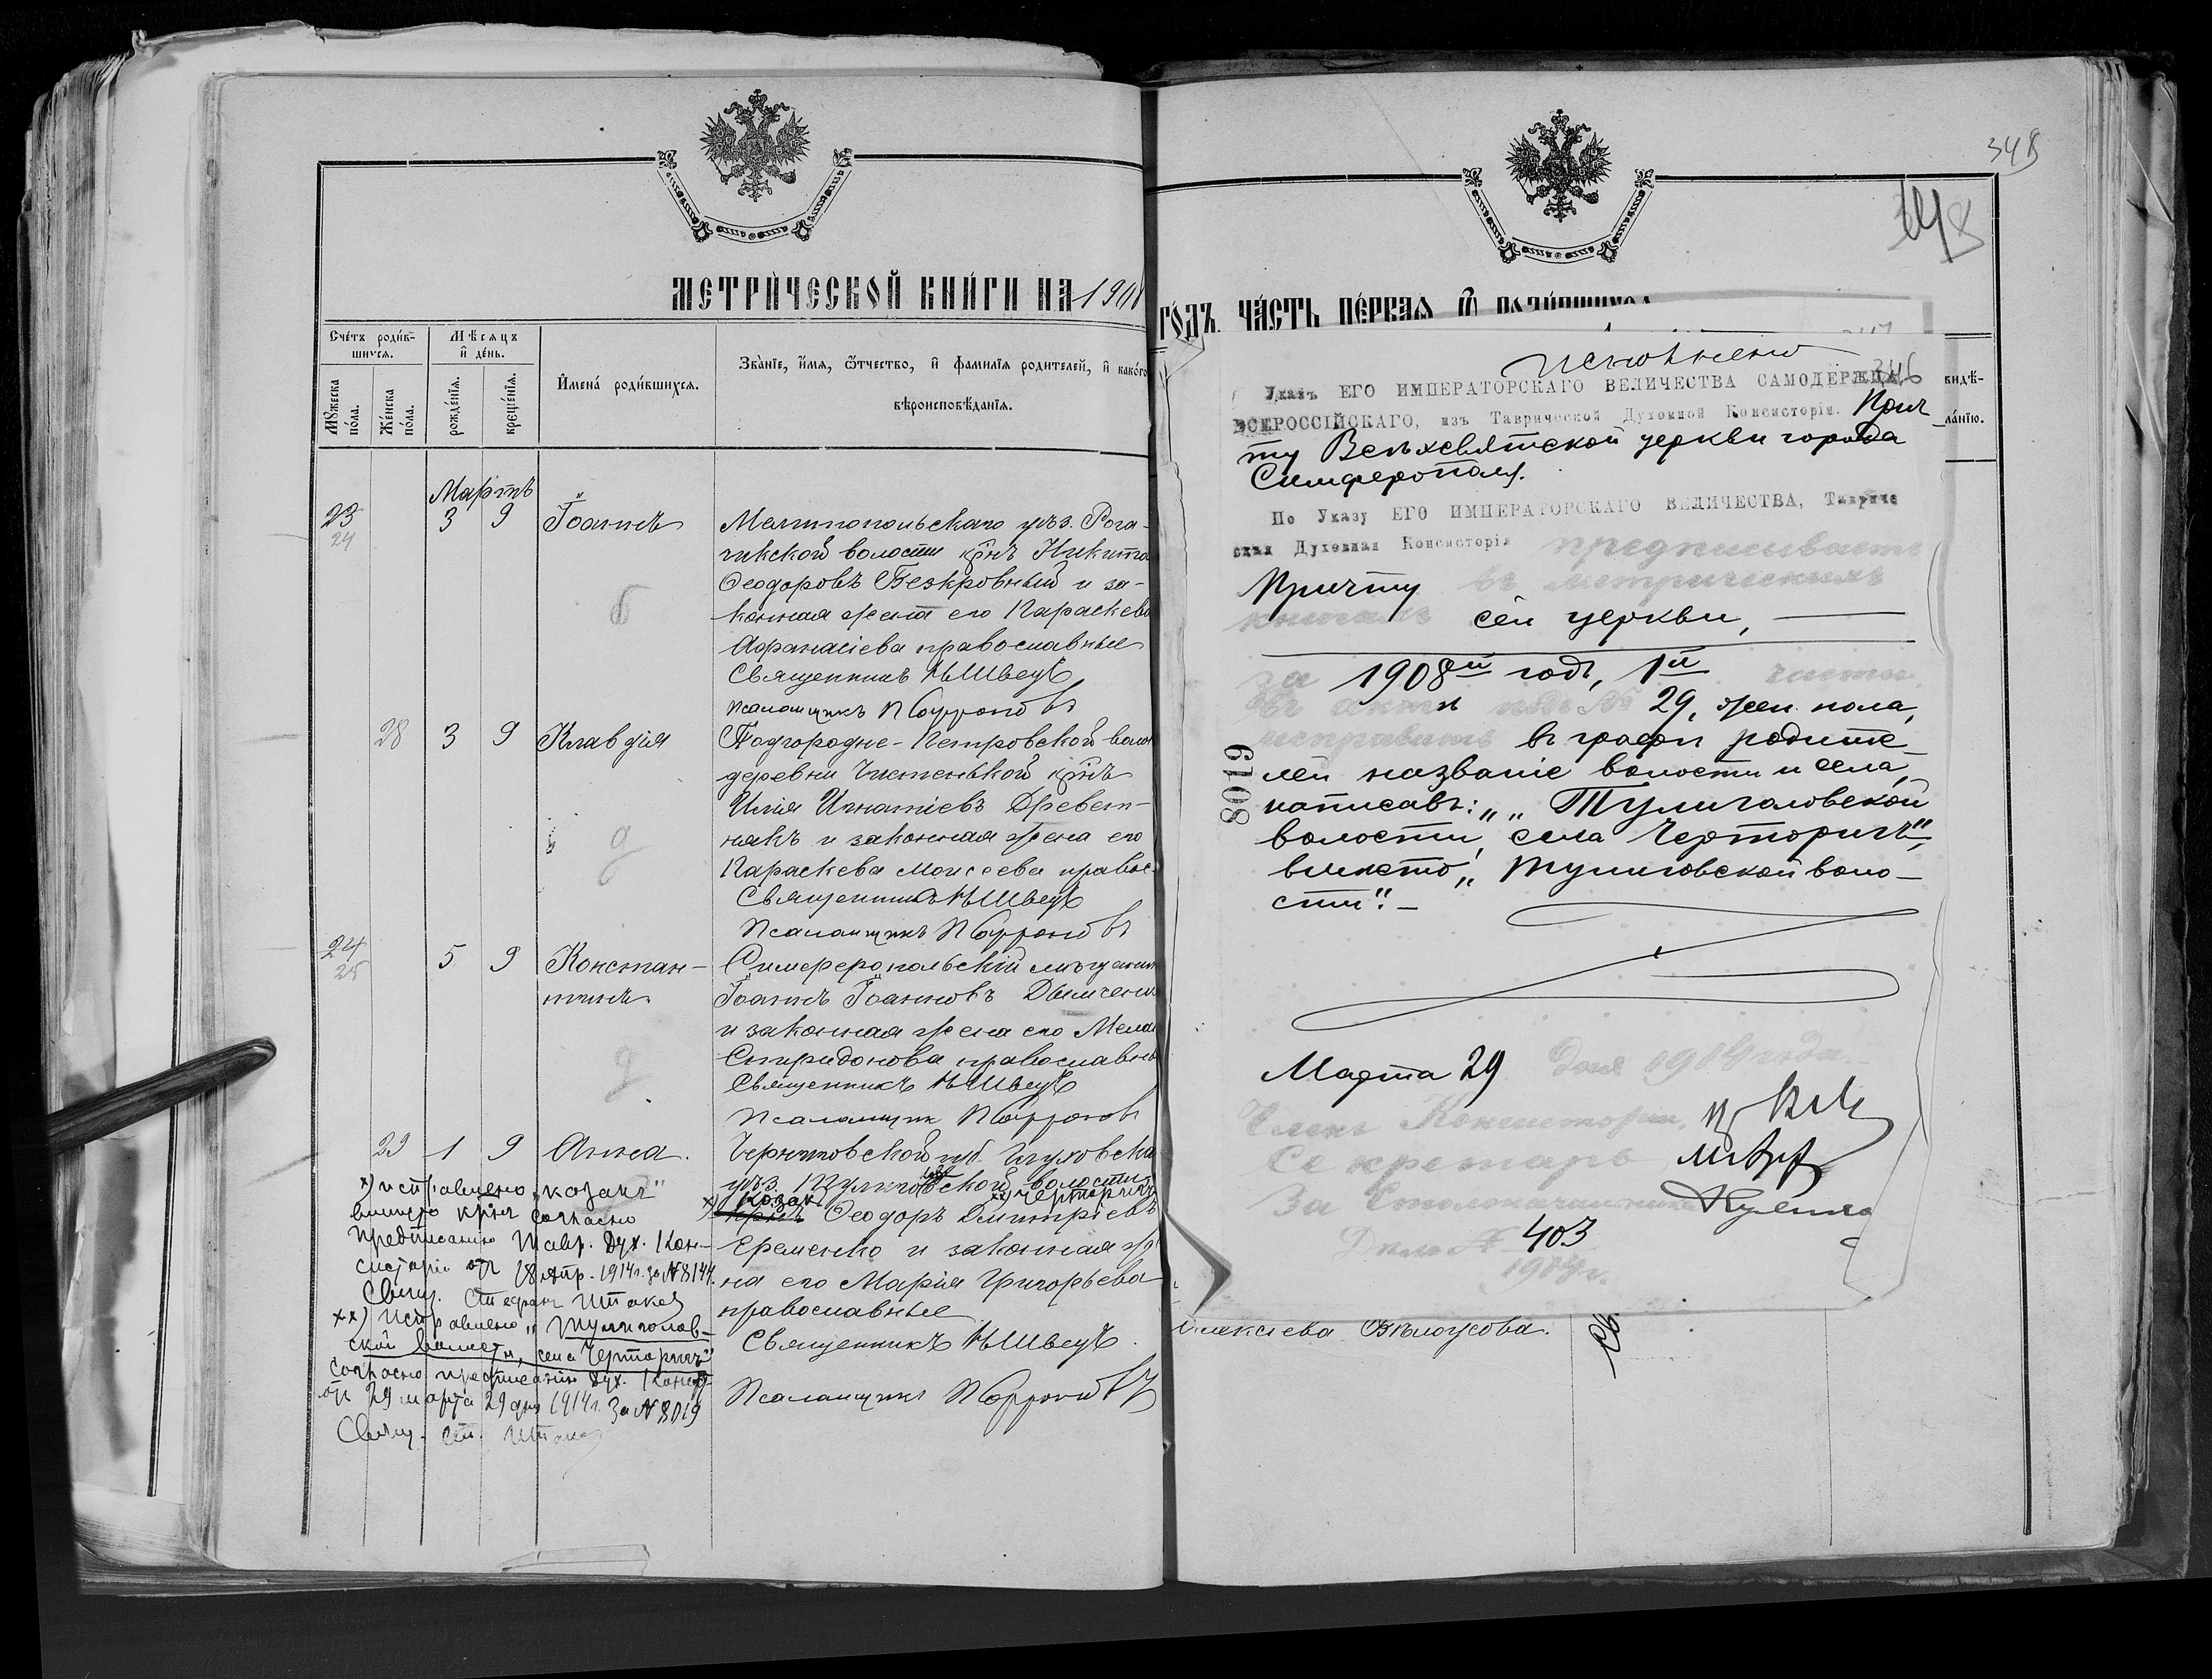 МЕТРИЧЕСКОЙ КНИГИ НА 1908
Счетъ родив-
шихся.
Мѣсяцъ
и день.
Мужеска
пола.
Женска
пола.
рожденія.
крещенія.
Имена родившихся.
Званіе, имя, отчество, и фамилія родителей, и какого
вѣроисповѣданія.
Мартъ
23
24
3 9 Іоаннъ
Мелитопольскаго уѣз. Рога-
чикской волости крнъ Никита
Ѳеодоровъ Безкровный и за-
конная жена его Параскева
Аѳанасіева православные
Священникъ Н Швецъ
Псаломщикъ
28 3 9 Клавдія
Подгородне-Петровской воло
деревни Чистенькой крнъ
Илія Игнатіевъ Древет-
някъ и законная жена его
Параскева Моисеева правос
Священникъ Н Швецъ
Псаломщикъ
24
25
5 9 Констан-
тинъ
Симферопольскій мѣщанин
Іоаннъ Іоанновъ
и законная жена его Мела
Спиридонова православны
Священникъ Н Швецъ
Псаломщик
29 1 9 Анна.
Черниговской губ. Глуховска
уѣз. волости
х) Козак хх) Черторигъ
крнъ Ѳеодоръ Димитріевъ
Еременко и законная же
на его Марія Григорьева
православные
Священникъ Н Швецъ.
Псаломщикъ
х) исправлено „козакъ"
вмѣсто крнъ согласно
предписанію Тавр. Дух. Кон-
систоріи отъ 18 Апр. 1914 г. за № 8144.
Свящ. Стефанъ
хх) Исправлено „Тулиголов-
ской волости, села Черторигъ"
согласно предписанію Дух. Конс.
отъ 29 марта 29 дня 1914 г. за № 8019
Свящ. Ст.
348
ГОДЪ. ЧАСТЬ ПЕРВАЯ
Исполнено
346
Указъ ЕГО ИМПЕРАТОРСКАГО ВЕЛИЧЕСТВА САМОДЕРЖЦА
ВСЕРОССІЙСКАГО, изъ Таврической Духовной Консисторіи. Прич
ту Всѣхсвятской церкви города
Симферополя.
По Указу ЕГО ИМПЕРАТОРСКАГО ВЕЛИЧЕСТВА, Тавриче
ская Духовная Консисторія предписываетъ
Причту въ метрическихъ
книгахъ сей церкви,
за 1908й годъ, 1й части,
въ актѣ подъ № 29, жен. пола,
исправить въ графѣ родите-
лей названіе волости и села,
написавъ: „Тулиголовской
волости, села Черторигъ",
вмѣсто, „Тулиговской воло-
сти".-
8019
Марта 29 дня 1914 года
Членъ Консисторіи,
Секретарь
За Столоначальника
Дѣло № 403
1914 г.
видѣ-
ланію.
Алексіева Бѣлоусова.